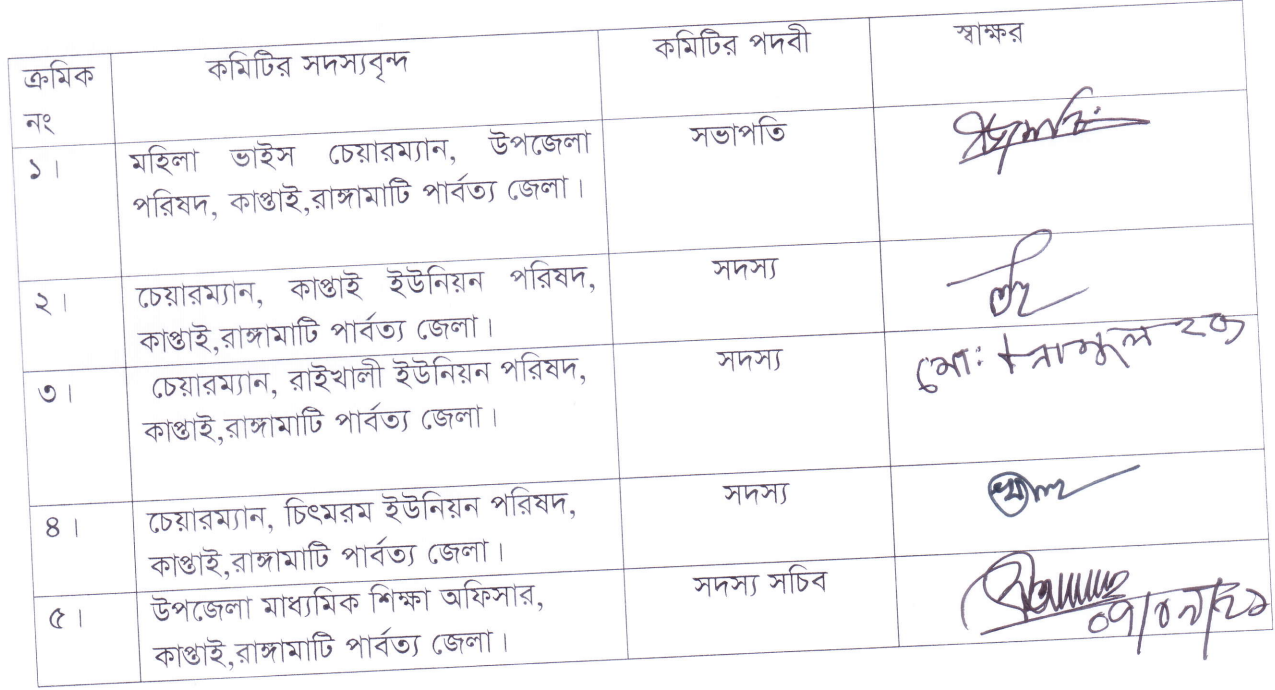 ক্রমিক
নং
কমিটির সদস্যবৃন্দ
কমিটির পদবী
স্বাক্ষর
১।
মহিলা ভাইস চেয়ারম্যান, উপজেলা
পরিষদ, কাপ্তাই,রাঙ্গামাটি পার্বত্য জেলা।
সভাপতি
২।
চেয়ারম্যান, কাপ্তাই ইউনিয়ন পরিষদ,
কাপ্তাই,রাঙ্গামাটি পার্বত্য জেলা।
সদস্য
৩।
চেয়ারম্যান, রাইখালী ইউনিয়ন পরিষদ,
কাপ্তাই,রাঙ্গামাটি পার্বত্য জেলা।
সদস্য
মো:
৪।
চেয়ারম্যান, চিৎমরম ইউনিয়ন পরিষদ,
কাপ্তাই,রাঙ্গামাটি পার্বত্য জেলা।
সদস্য
৫।
উপজেলা মাধ্যমিক শিক্ষা অফিসার,
কাপ্তাই,রাঙ্গামাটি পার্বত্য জেলা।
সদস্য সচিব